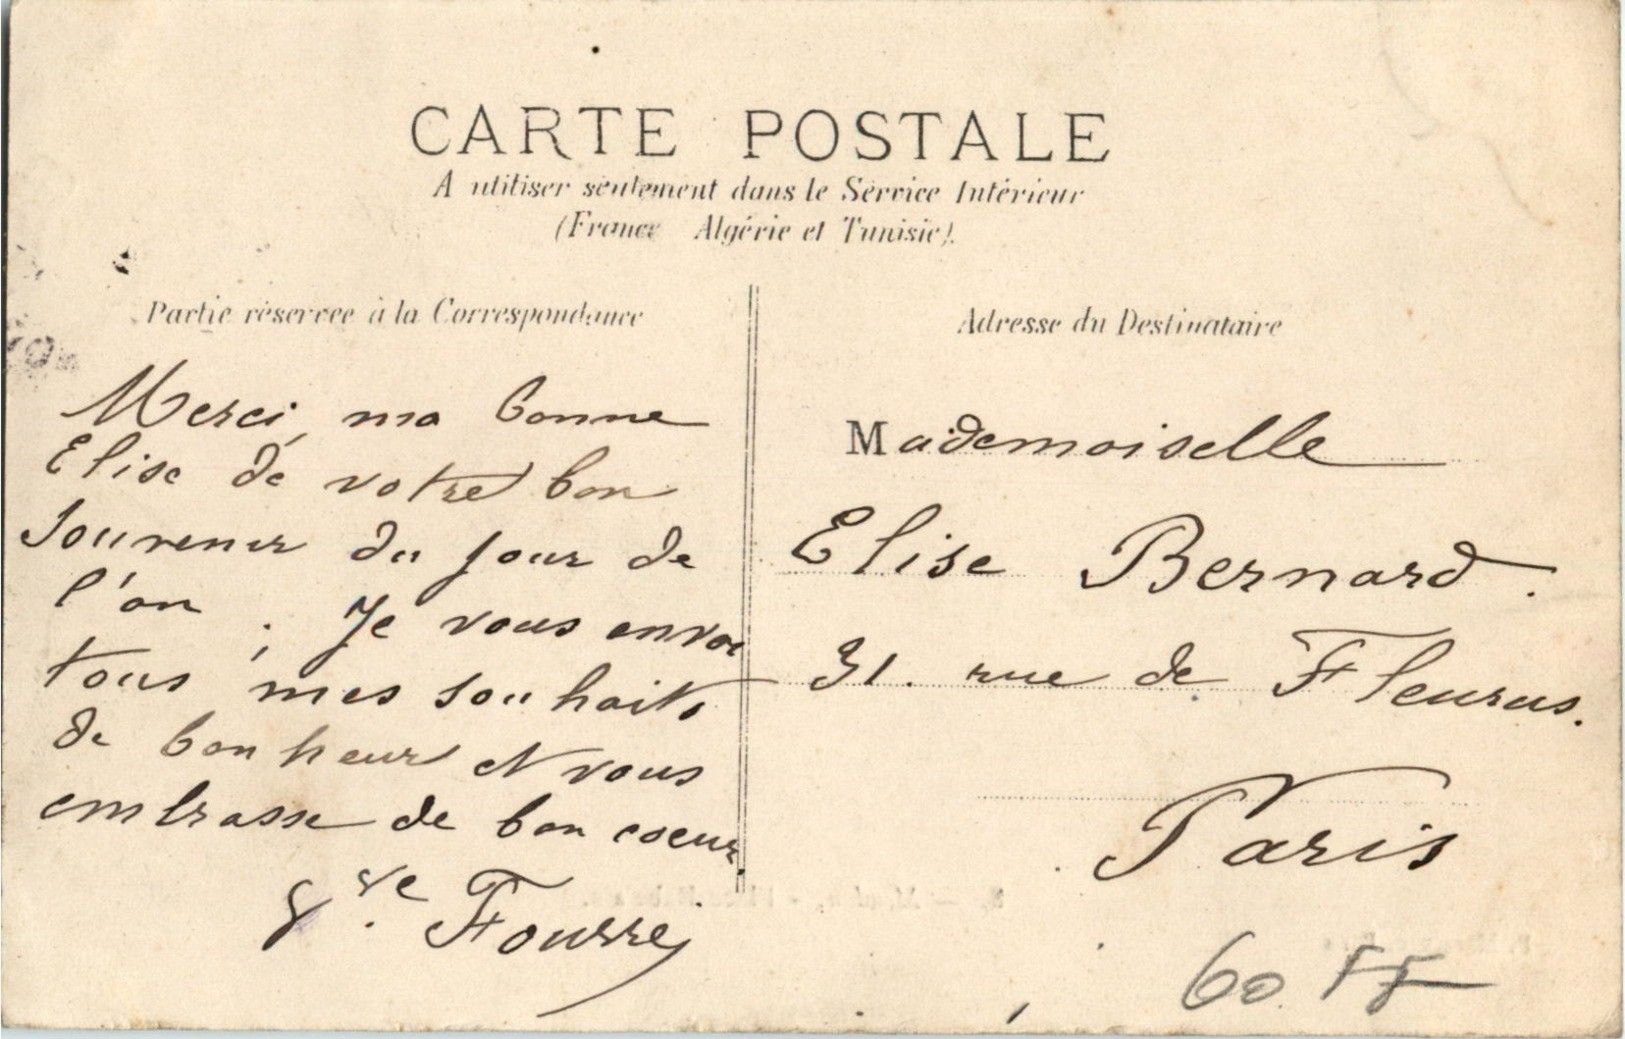 CARTE POSTALE
A utiliser seulement dans le Service Intérieur
(France Algérie et Tunisie).
Partie réservée à la Correspondance
Merci, ma bonne
Elise de votre bon
souvenir du jour de
l'an. Je vous envoi
tous mes souhaits
de bonheur et vous
embrasse de bon coeur
Vve Fourré
Adresse du Destinataire
Mademoiselle
Elise Bernard.
31. rue de Fleurus.
Paris
60 FF